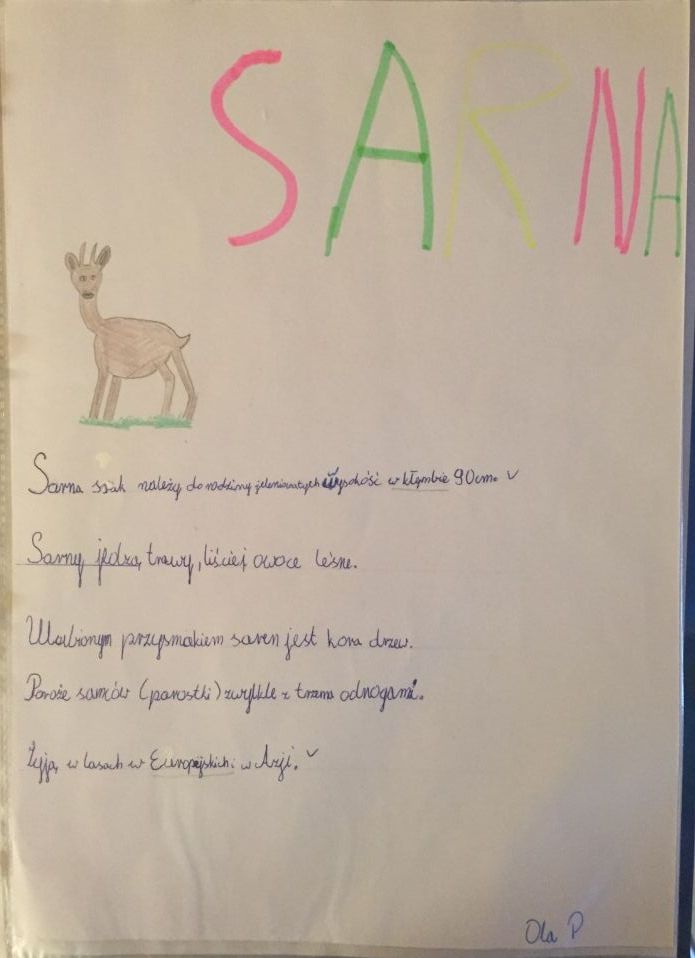 SARNA
Sarna ssak należy do rodziny jeleniowatych wysokość w kłębie 90cm.
Sarny jedzą trawy, liście, owoce leśne.
Ulubionym przysmakiem saren jest kora drzew.
Poroże samców (parostki) zwykle z trzema odnogami.
Żyją w lasach w Europejskich i w Azji.
Ola P